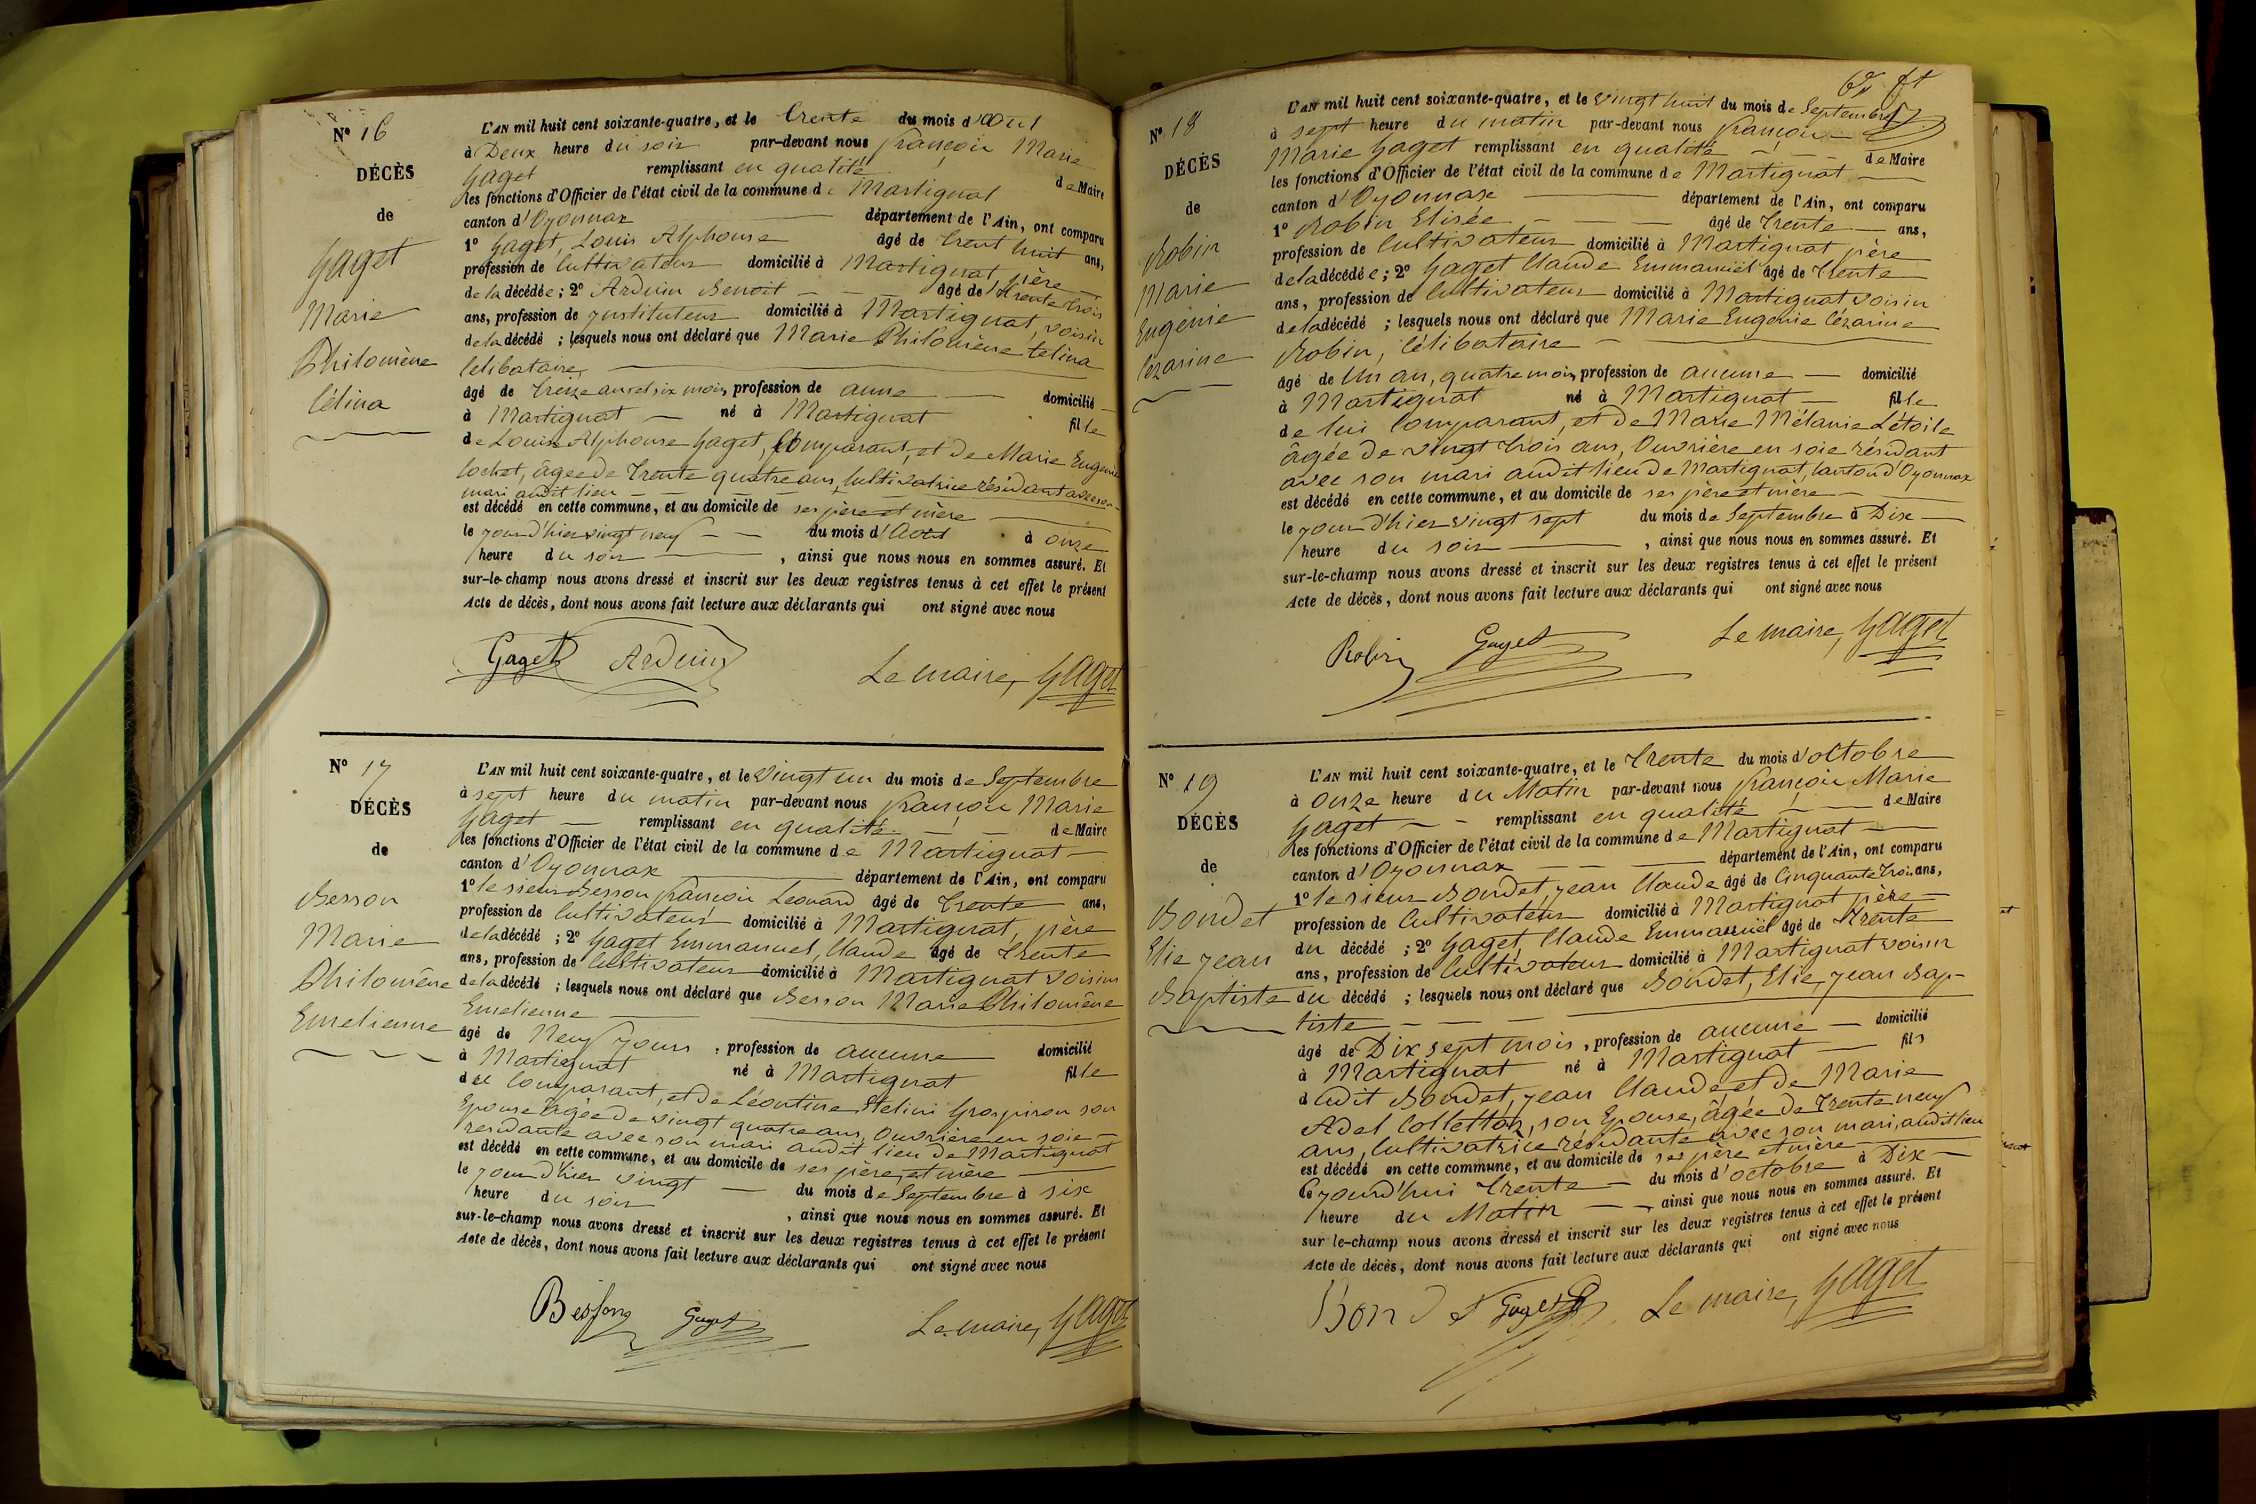 N° 16
DÉCÈS
de
Gaget
Marie
Philomène
Célina
L'AN mil huit cent soixante-quatre, et le trente du mois d'Aout
à Deux heure du soir par-devant nous françois Marie
Gaget remplissant en qualité de Maire
les fonctions d'Officier de l'état civil de la commune de Martignat
canton d'Oyonnax département de l'Ain, ont comparu
1° Gaget, Louis Alphonse âgé de trent huit ans,
profession de Cultivateur domicilié à Martignat père
de la décédée ; 2° Arduin Benoit âgé de trente trois
ans, profession de instituteur domicilié à Martignat, voisin
de la décédé ; lesquels nous ont déclaré que Marie Philomène Célina
Célibataire,
âgé de treize ans et six mois, profession de aune domicilié
à Martignat né à Martignat fille
de Louis Alphonse Gaget, Comparant, et de Marie Eugenie
Cochet, âgée de trente quatre ans, Cultivatrice résidant avec son
mari audit lieu
est décédé en cette commune, et au domicile de ses père et mère
le jour d'hier vingt neuf du mois d'Aout à onze
heure du soir , ainsi que nous nous en sommes assuré. Et
sur-le-champ nous avons dressé et inscrit sur les deux registres tenus à cet effet le présent
Acte de décès, dont nous avons fait lecture aux déclarants qui ont signé avec nous
Gaget Arduin Le maire, Gaget
N° 17
DÉCÈS
de
Besson
Marie
Philomène
Emelienne
L'AN mil huit cent soixante-quatre, et le vingt un du mois de Septembre
à sept heure du matin par-devant nous françois Marie
Gaget remplissant en qualité de Maire
les fonctions d'Officier de l'état civil de la commune de Martignat
canton d'Oyonnax département de l'Ain, ont comparu
1° le sieur Besson françois Leonard âgé de trente ans,
profession de Cultivateur domicilié à Martignat, père
de la décédé ; 2° Gaget Emmanuel, Claude âgé de trente
ans, profession de Cultivateur domicilié à Martignat voisin
de la décédé ; lesquels nous ont déclaré que Besson Marie Philomène
Emelienne
âgé de Neuf jours , profession de aucune domicilié
à Martignat né à Martignat fille
du Comparant, et de Léontine Grospiron son
Epouse âgée de vingt quatre ans, Ouvrière en soie
residante avec son mari audit lieu de Martignat
est décédé en cette commune, et au domicile de ses père et mère
le jour d'hier vingt du mois de Septembre à six
heure du soir , ainsi que nous nous en sommes assuré. Et
sur-le-champ nous avons dressé et inscrit sur les deux registres tenus à cet effet le présent
Acte de décès, dont nous avons fait lecture aux déclarants qui ont signé avec nous
Besson Gaget Le maire, Gaget
N° 18
DÉCÈS
de
Robin
Marie
Eugénie
Cézarine
L'AN mil huit cent soixante-quatre, et le vingt huit du mois de Septembre
à sept heure du matin par-devant nous françois
Marie Gaget remplissant en qualité de Maire
les fonctions d'Officier de l'état civil de la commune de Martignat
canton d'Oyonnax département de l'Ain, ont comparu
1° Robin Elisée âgé de trente ans,
profession de Cultivateur domicilié à Martignat père
de la décédée ; 2° Gaget Claude Emmanuël âgé de trente
ans, profession de Cultivateur domicilié à Martignat voisin
de la décédé ; lesquels nous ont déclaré que Marie Eugenie Cézarine
Robin, Célibataire
âgé de Un an, quatre mois, profession de aucune domicilié
à Martignat né à Martignat fille
de lui Comparant, et de Marie Mélanie Létoile
âgée de vingt trois ans, Ouvrière en soie résidant
avec son mari audit lieu de Martignat, Canton d'Oyonnax
est décédé en cette commune, et au domicile de ses père et mère
le jour d'hier vingt sept du mois de Septembre à Dix
heure du soir , ainsi que nous nous en sommes assuré. Et
sur-le-champ nous avons dressé et inscrit sur les deux registres tenus à cet effet le présent
Acte de décès, dont nous avons fait lecture aux déclarants qui ont signé avec nous
Robin Gaget Le maire, Gaget
N° 19
DÉCÈS
de
Bondet
Elie Jean
Baptiste
L'AN mil huit cent soixante-quatre, et le trente du mois d'octobre
à onze heure du Matin par-devant nous françois Marie
Gaget remplissant en qualité de Maire
les fonctions d'Officier de l'état civil de la commune de Martignat
canton d'Oyonnax département de l'Ain, ont comparu
1° le sieur Bondet, Jean Claude âgé de Cinquante trois ans,
profession de Cultivateur domicilié à Martignat père
du décédé ; 2° Gaget, Claude Emmanuël âgé de trente
ans, profession de Cultivateur domicilié à Martignat voisin
du décédé ; lesquels nous ont déclaré que Bondet, Elie, Jean Bap-
tiste
âgé de Dix sept mois , profession de aucune domicilié
à Martignat né à Martignat fils
dudit Bondet, Jean Claude et de Marie
Adel Colletton, son Epouse, âgée de trente neuf
ans, Cultivatrice résidante avec son mari, audit lieu
est décédé en cette commune, et au domicile de ses père et mère
le jourd'hui trente du mois d'octobre à Dix
heure du Matin , ainsi que nous nous en sommes assuré. Et
sur le-champ nous avons dressé et inscrit sur les deux registres tenus à cet effet le présent
Acte de décès, dont nous avons fait lecture aux déclarants qui ont signé avec nous
Bondet Gaget Le maire, Gaget